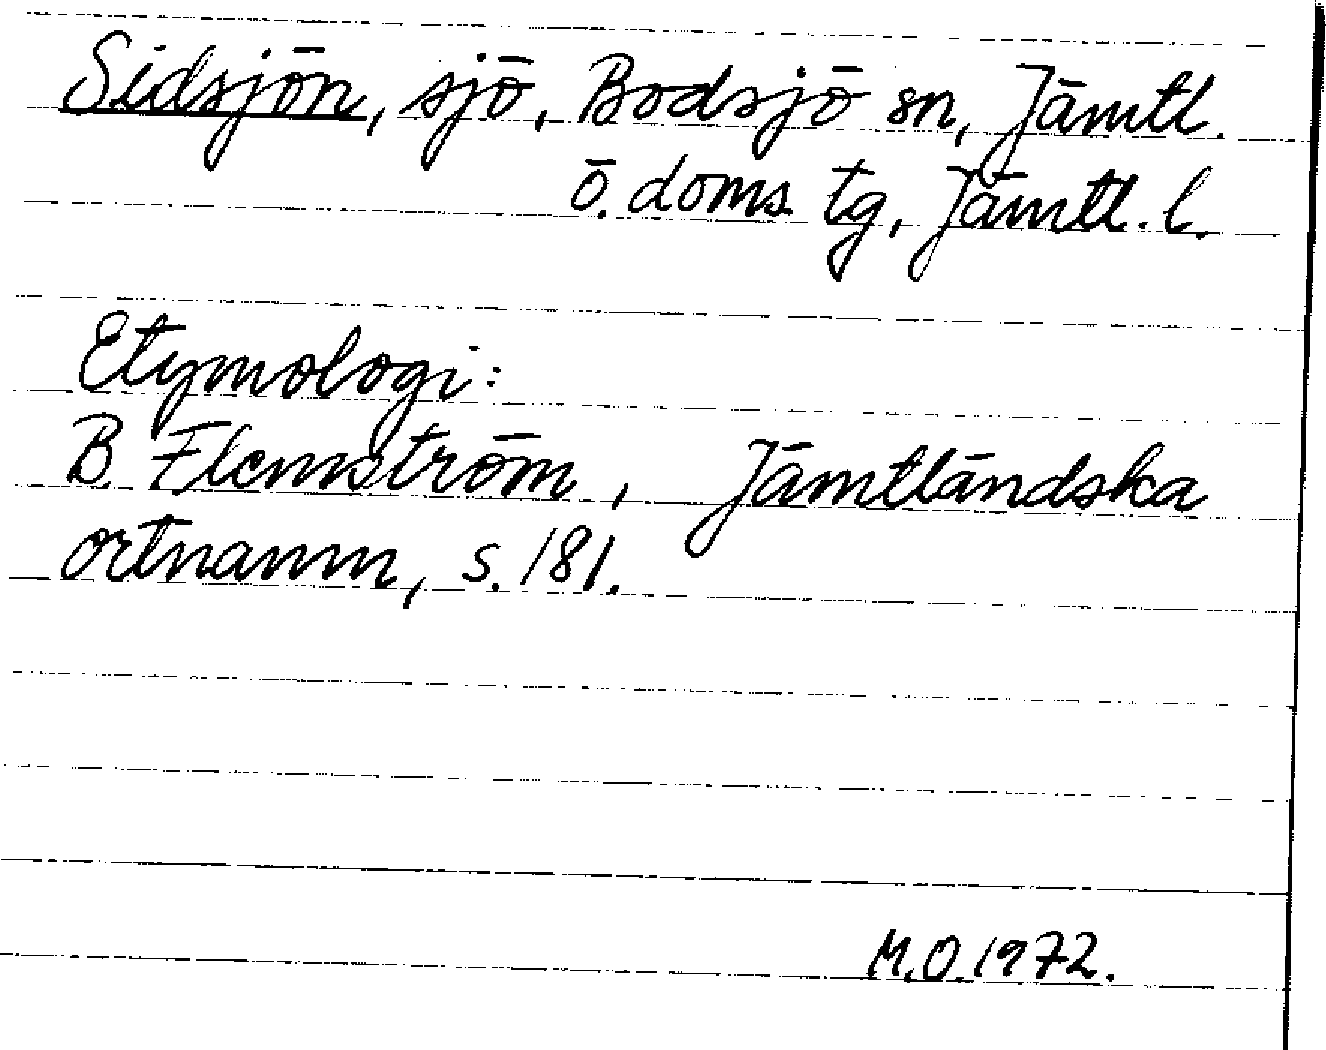 Sidsjön, sjö, Bodsjö sn, Jämtl.
ö. doms tg, Jämtl. l.
Etymologi:
B Flemström, Jämtländska
ortnamn, s. 181.
M.O.1972.